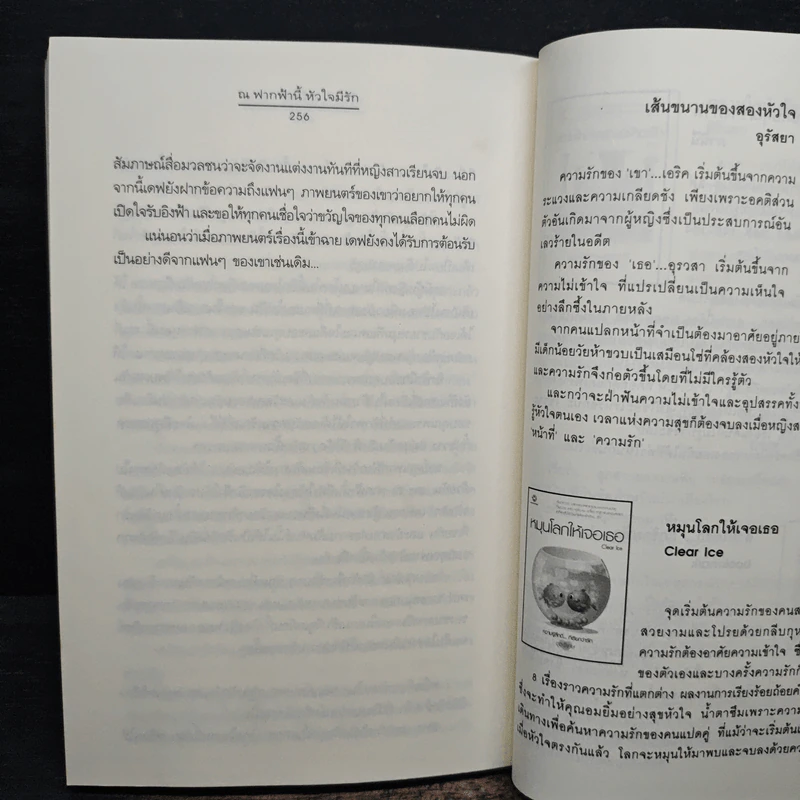 ณ ฟากฟ้านี้ หัวใจมีรัก
256
สัมภาษณ์สื่อมวลชนว่าจะจัดงานแต่งงานทันทีที่หญิงสาวเรียนจบ นอก
จากนี้เดฟยังฝากข้อความถึงแฟนๆ ภาพยนตร์ของเขาว่าอยากให้ทุกคน
เปิดใจรับอิงฟ้า และขอให้ทุกคนเชื่อใจว่าขวัญใจของทุกคนเลือกคนไม่ผิด
แน่นอนว่าเมื่อภาพยนตร์เรื่องนี้เข้าฉาย เดฟยังคงได้รับการต้อนรับ
เป็นอย่างดีจากแฟนๆ ของเขาเช่นเดิม...
เส้นขนานของสองหัวใจ
อุรัสยา
ความรักของ 'เขา'...เอริค เริ่มต้นขึ้นจากความ
ระแวงและความเกลียดชัง เพียงเพราะอคติส่วน
ตัวอันเกิดมาจากผู้หญิงซึ่งเป็นประสบการณ์อัน
เลวร้ายในอดีต
ความรักของ 'เธอ'...อุรวสา เริ่มต้นขึ้นจาก
ความไม่เข้าใจ ที่แปรเปลี่ยนเป็นความเห็นใจ
อย่างลึกซึ้งในภายหลัง
จากคนแปลกหน้าที่จำเป็นต้องมาอาศัยอยู่ภาย
มีเด็กน้อยวัยห้าขวบเป็นเสมือนโซ่ที่คล้องสองหัวใจให้
และความรักจึงก่อตัวขึ้นโดยที่ไม่มีใครรู้ตัว
และกว่าจะฝ่าฟันความไม่เข้าใจและอุปสรรคทั้ง
รู้หัวใจตนเอง เวลาแห่งความสุขก็ต้องจบลงเมื่อหญิงส
'หน้าที่' และ 'ความรัก'
หมุนโลกให้เจอเธอ
Clear Ice
หมุนโลกให้เจอเธอ
Clear Ice
จุดเริ่มต้นความรักของคนส
สวยงามและโปรยด้วยกลีบกุห
ความรักต้องอาศัยความเข้าใจ ซึ
ของตัวเองและบางครั้งความรักก็
8 เรื่องราวความรักที่แตกต่าง ผลงานการเรียงร้อยถ้อยคำ
ซึ่งจะทำให้คุณอมยิ้มอย่างสุขหัวใจ น้ำตาซึมเพราะความ
เส้นทางเพื่อค้นหาความรักของคนแปดคู่ ที่แม้ว่าจะเริ่มต้นแ
เมื่อหัวใจตรงกันแล้ว โลกจะหมุนให้มาพบและจบลงด้วยคว